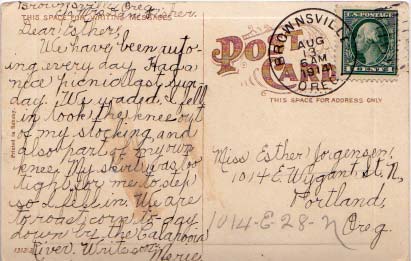 Brownsville, Oreg.
THIS SPACE FOR WRITING MESSAGES
Dear Esther;
We have been auto-
ing every day. Had a
nice picnic last Sun-
day. We waded, I fell
in took the knee out
of my stocking and
also part of my own
knee. My skirt was too
tight for me to step
so I fell in. We are
to roast corn to-day
down by the Calapooia
River. Write soon
Marie
POST CARD
BROWNSVILLE
AUG
6 AM
1914
ORE.
U.S. POSTAGE
1 CENT 1
THIS SPACE FOR ADDRESS ONLY
Miss Esther Jorgensen,
1014 E. Wygant St. N,
Portland,
Oreg.
1014-E-28-N
Printed in